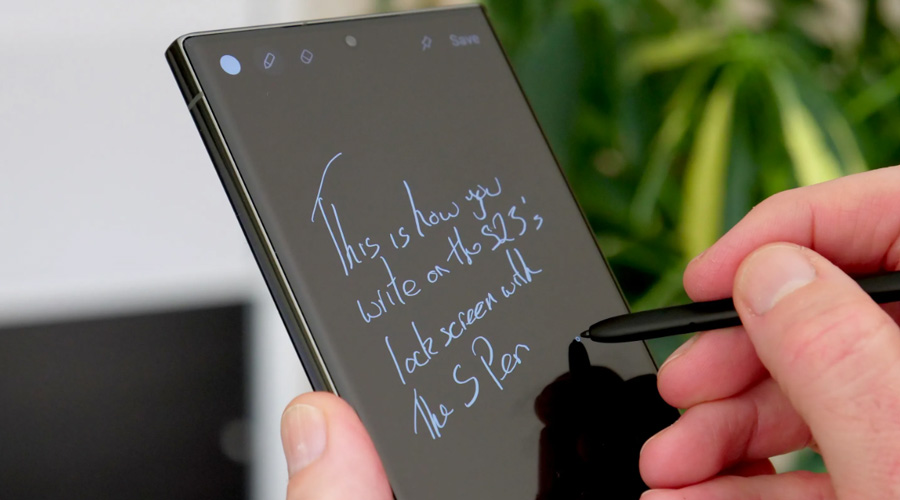 Save
This is how you
write on the S23's
lock screen with
The S Pen